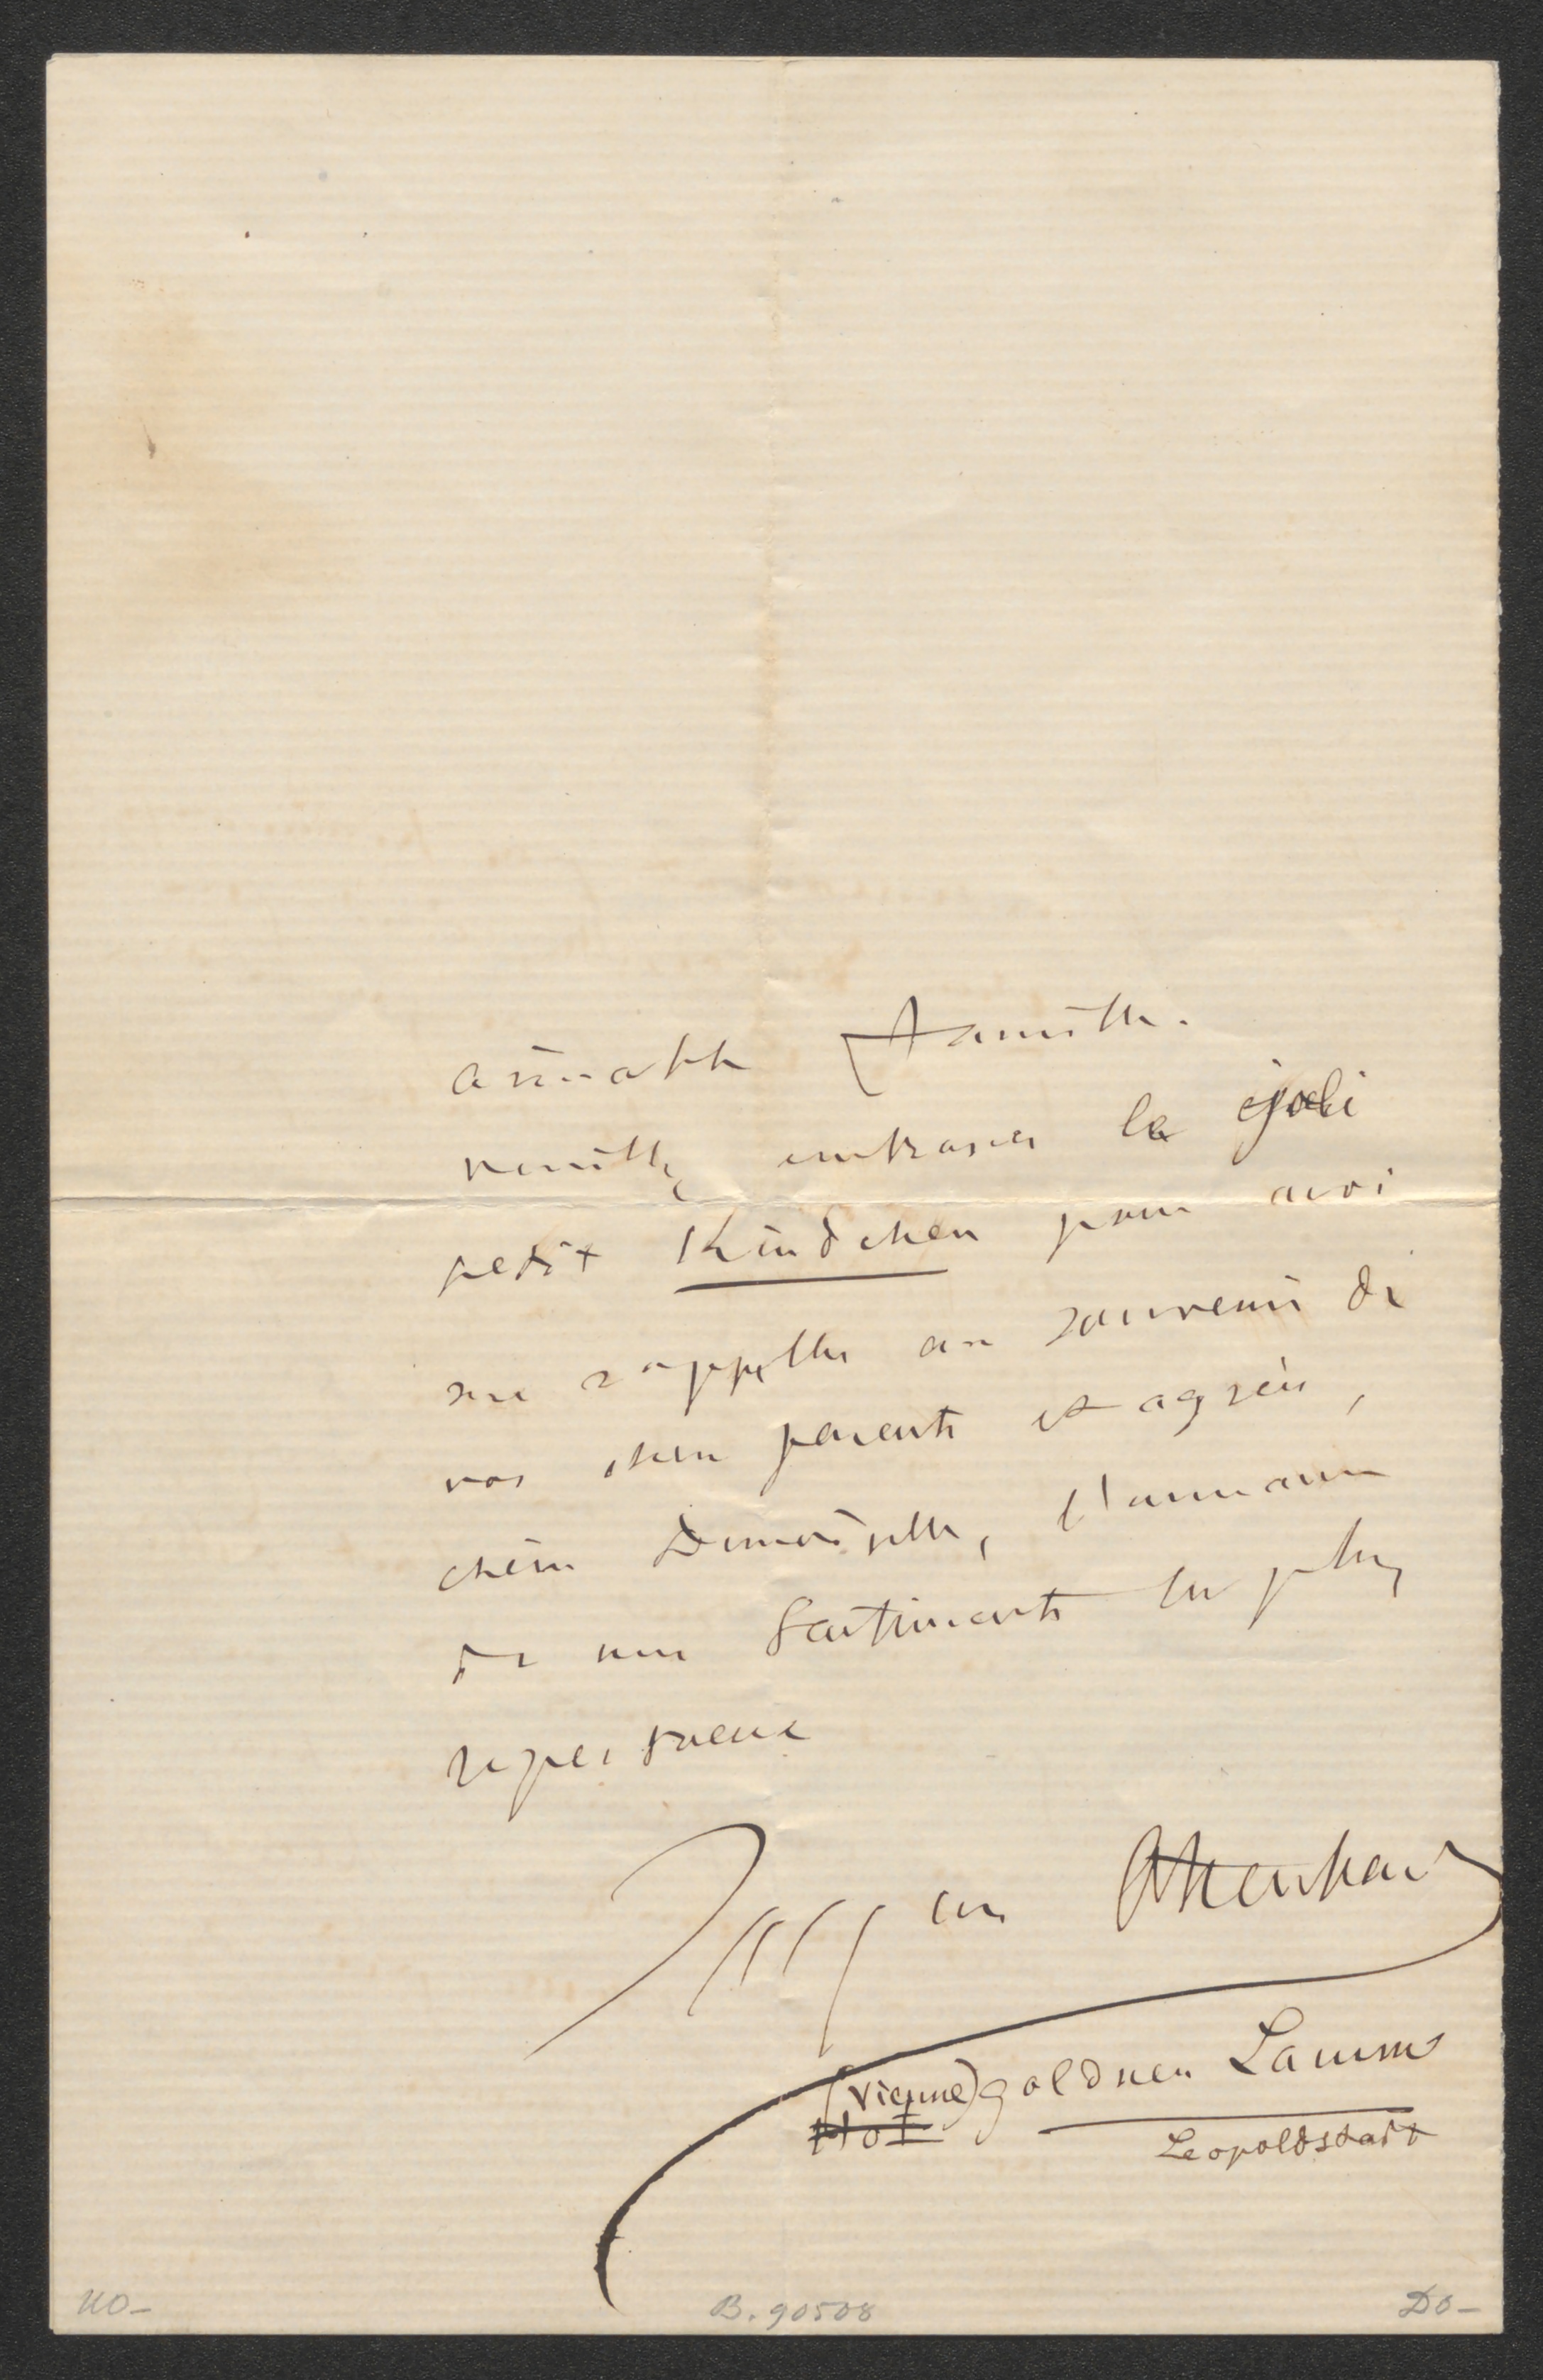 aimable famille.
veuillez embrasser le joli
petit Kindchen pour moi
me rappeller au souvenir de
vos chers parents et agréez,
chère Demoiselle, l'assurance
de mes sentiments les plus
respectueux
Offenbach
(Vienne) goldnen Lamm
Hot
Leopoldstadt
B. 90508